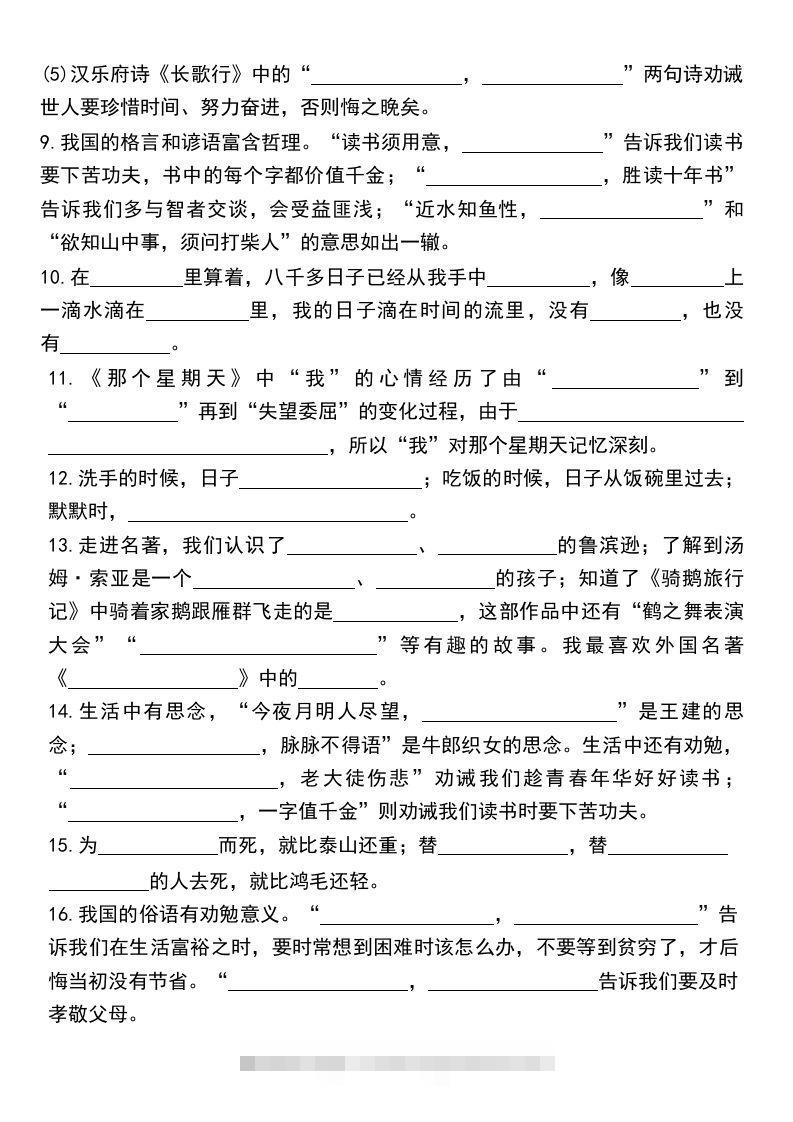 (5)汉乐府诗《长歌行》中的“______________,______________”两句诗劝诫
世人要珍惜时间、努力奋进,否则悔之晚矣。
9.我国的格言和谚语富含哲理。“读书须用意,______________”告诉我们读书
要下苦功夫,书中的每个字都价值千金;“________________,胜读十年书”
告诉我们多与智者交谈,会受益匪浅;“近水知鱼性,________________”和
“欲知山中事,须问打柴人”的意思如出一辙。
10.在_________里算着,八千多日子已经从我手中__________,像_________上
一滴水滴在__________里,我的日子滴在时间的流里,没有_________,也没
有___________。
11.《那个星期天》中“我”的心情经历了由“______________”到
“___________”再到“失望委屈”的变化过程,由于______________________
___________________________,所以“我”对那个星期天记忆深刻。
12.洗手的时候,日子__________________;吃饭的时候,日子从饭碗里过去;
默默时,___________________________。
13.走进名著,我们认识了_____________、____________的鲁滨逊;了解到汤
姆·索亚是一个________________、____________的孩子;知道了《骑鹅旅行
记》中骑着家鹅跟雁群飞走的是____________,这部作品中还有“鹤之舞表演
大会”“_______________________”等有趣的故事。我最喜欢外国名著
《_________________》中的________。
14.生活中有思念,“今夜月明人尽望,___________________”是王建的思
念;_________________,脉脉不得语”是牛郎织女的思念。生活中还有劝勉,
“____________________,老大徒伤悲”劝诫我们趁青春年华好好读书;
“_________________,一字值千金”则劝诫我们读书时要下苦功夫。
15.为____________而死,就比泰山还重;替_____________,替____________
__________的人去死,就比鸿毛还轻。
16.我国的俗语有劝勉意义。“_________________,__________________”告
诉我们在生活富裕之时,要时常想到困难时该怎么办,不要等到贫穷了,才后
悔当初没有节省。“__________________,_________________告诉我们要及时
孝敬父母。